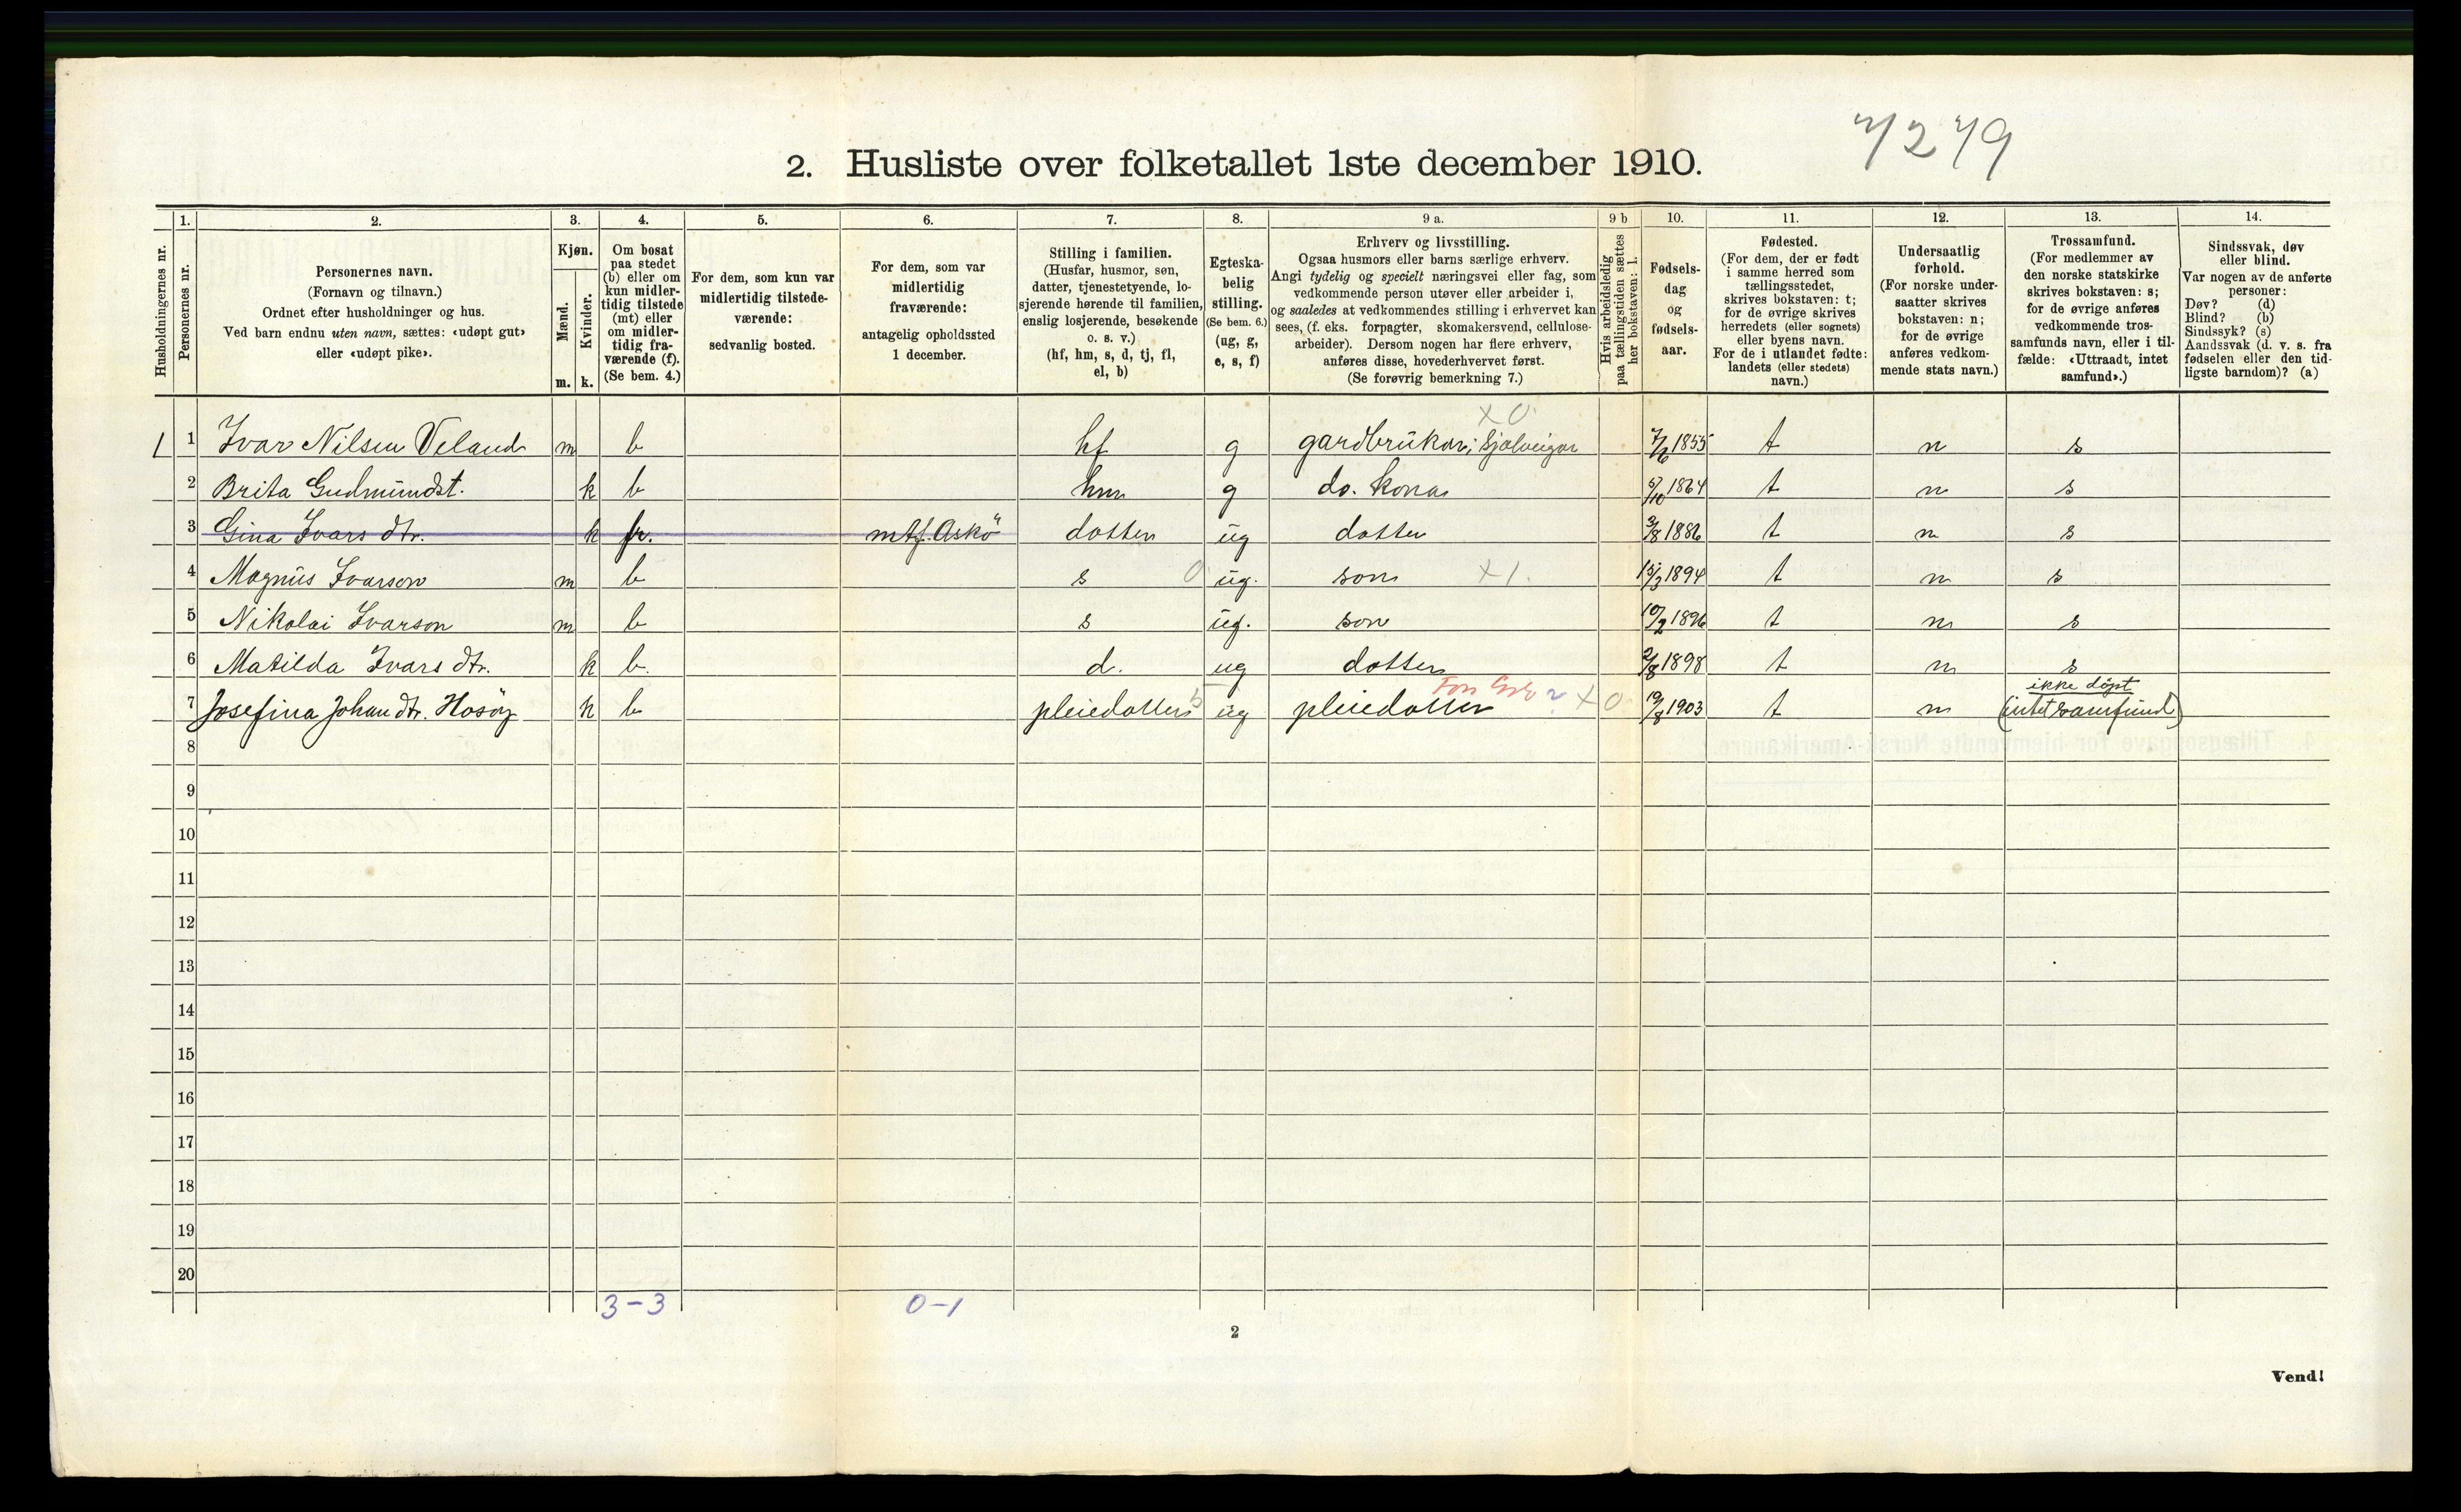 7279
2. Husliste over folketallet 1ste december 1910.
Husholdningernes nr.
1.
Personernes nr.
2.
Personernes navn.
(Fornavn og tilnavn.)
Ordnet efter husholdninger og hus.
Ved barn endnu uten navn, sættes: «udøpt gut»
eller «udøpt pike».
3.
Kjøn.
Mænd.
Kvinder.
m. k.
4.
Om bosat
paa stedet
(b) eller om
kun midler-
tidig tilstede
(mt) eller
om midler-
tidig fra-
værende (f).
(Se bem. 4.)
5.
For dem, som kun var
midlertidig tilstede-
værende:
sedvanlig bosted.
6.
For dem, som var
midlertidig
fraværende:
antagelig opholdssted
1 december.
7.
Stilling i familien.
(Husfar, husmor, søn,
datter, tjenestetyende, lo-
sjerende hørende til familien,
enslig losjerende, besøkende
o. s. v.)
(hf, hm, s, d, tj, fl,
el, b)
8.
Egteska-
belig
stilling.
(Se bem. 6.)
(ug, g,
e, s, f)
9 a.
Erhverv og livsstilling.
Ogsaa husmors eller barns særlige erhverv.
Angi tydelig og specielt næringsvei eller fag, som
vedkommende person utøver eller arbeider i,
og saaledes at vedkommendes stilling i erhvervet kan
sees, (f. eks. forpagter, skomakersvend, cellulose-
arbeider). Dersom nogen har flere erhverv,
anføres disse, hovederhvervet først.
(Se forøvrig bemerkning 7.)
9 b
Hvis arbeidsledig
paa tællingstiden sættes
her bokstaven: l.
10.
Fødsels-
dag
og
fødsels-
aar.
11.
Fødested.
(For dem, der er født
i samme herred som
tællingsstedet,
skrives bokstaven: t;
for de øvrige skrives
herredets (eller sognets)
eller byens navn.
For de i utlandet fødte:
landets (eller stedets)
navn.)
12.
Undersaatlig
forhold.
(For norske under-
saatter skrives
bokstaven: n;
for de øvrige
anføres vedkom-
mende stats navn.)
13.
Trossamfund.
(For medlemmer av
den norske statskirke
skrives bokstaven: s;
for de øvrige anføres
vedkommende tros-
samfunds navn, eller i til-
fælde: «Uttraadt, intet
samfund».)
14.
Sindssvak, døv
eller blind.
Var nogen av de anførte
personer:
Døv? (d)
Blind? (b)
Sindssyk? (s)
Aandssvak (d. v. s. fra
fødselen eller den tid-
ligste barndom)? (a)
x 0
1 1 Ivar Nilsen Veland m b hf g gardbrukar; Sjølveigar 7/6 1855 t n s
2 Brita Gudmundst. k b hm g do. kona 5/10 1864 t n s
3 Gina Ivars dtr. k fr. Askö dotter ug dotter 3/8 1886 t n s
4 Magnus Ivarson m b s 0 ug. son x 1. 15/3 1894 t n s
5 Nikolai Ivarson m b s ug. son 10/2 1896 t n s
6 Matilda Ivars dtr. k b. d. ug dotter 2/8 1898 t n s
ikke döpt
7 Josefina Johan dtr. Hosöy k b pleiedotter 5 ug pleiedotter x 0 19/8 1903 t n (intet samfund)
8
9
10
11
12
13
14
15
16
17
18
19
20
3-3 0-1
2
Vend!